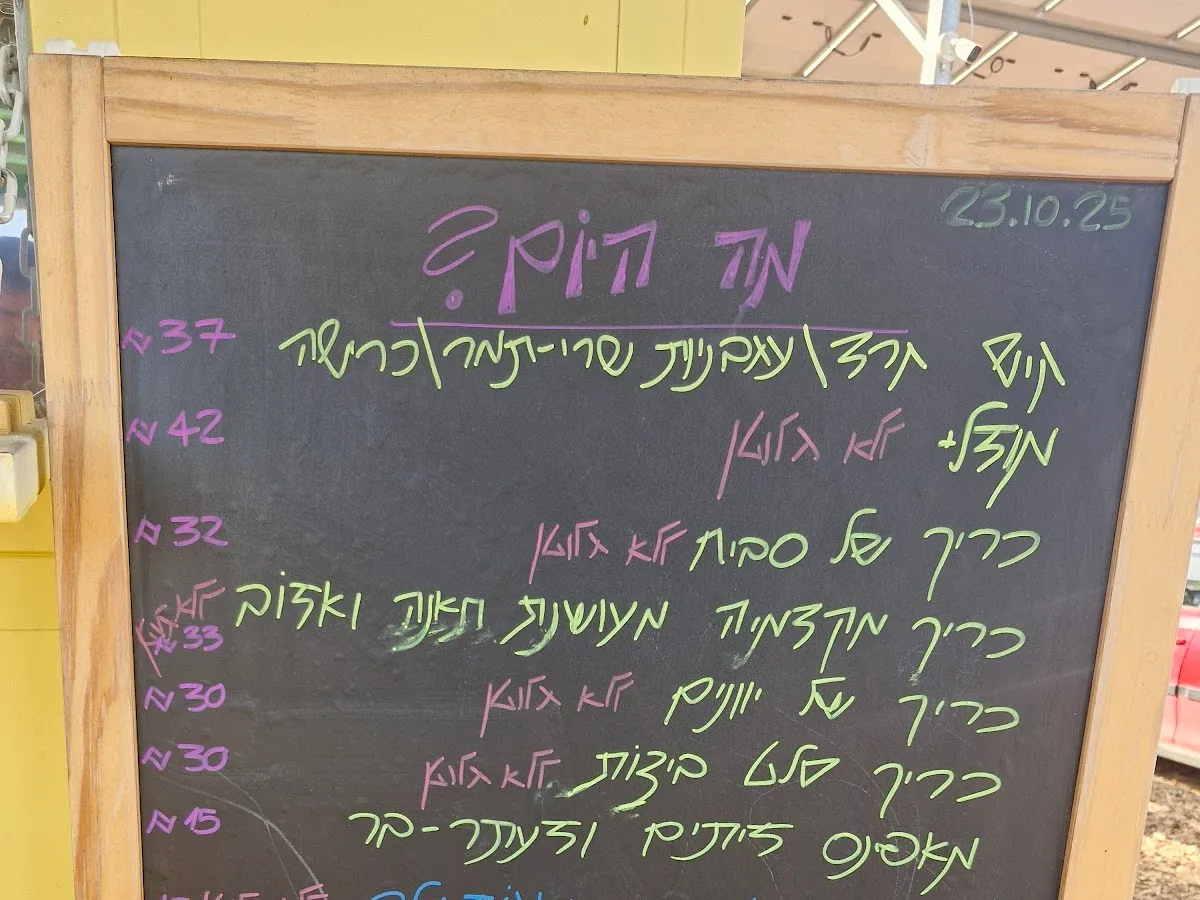 23.10.25
מה היום?
קיש תרד\עגבניות שרי-תמר\כרישה ₪37
מוזלי+ ללא גלוטן ₪42
כריך של סבית ללא גלוטן ₪32
כריך מקדמיה מעושנת תאנה ואזוב ללא גלוטן ₪33
כריך של יוונים ללא גלוטן ₪30
כריך סלט ביצות ללא גלוטן ₪30
מאפינס זיתים וזעתר-בר ₪15